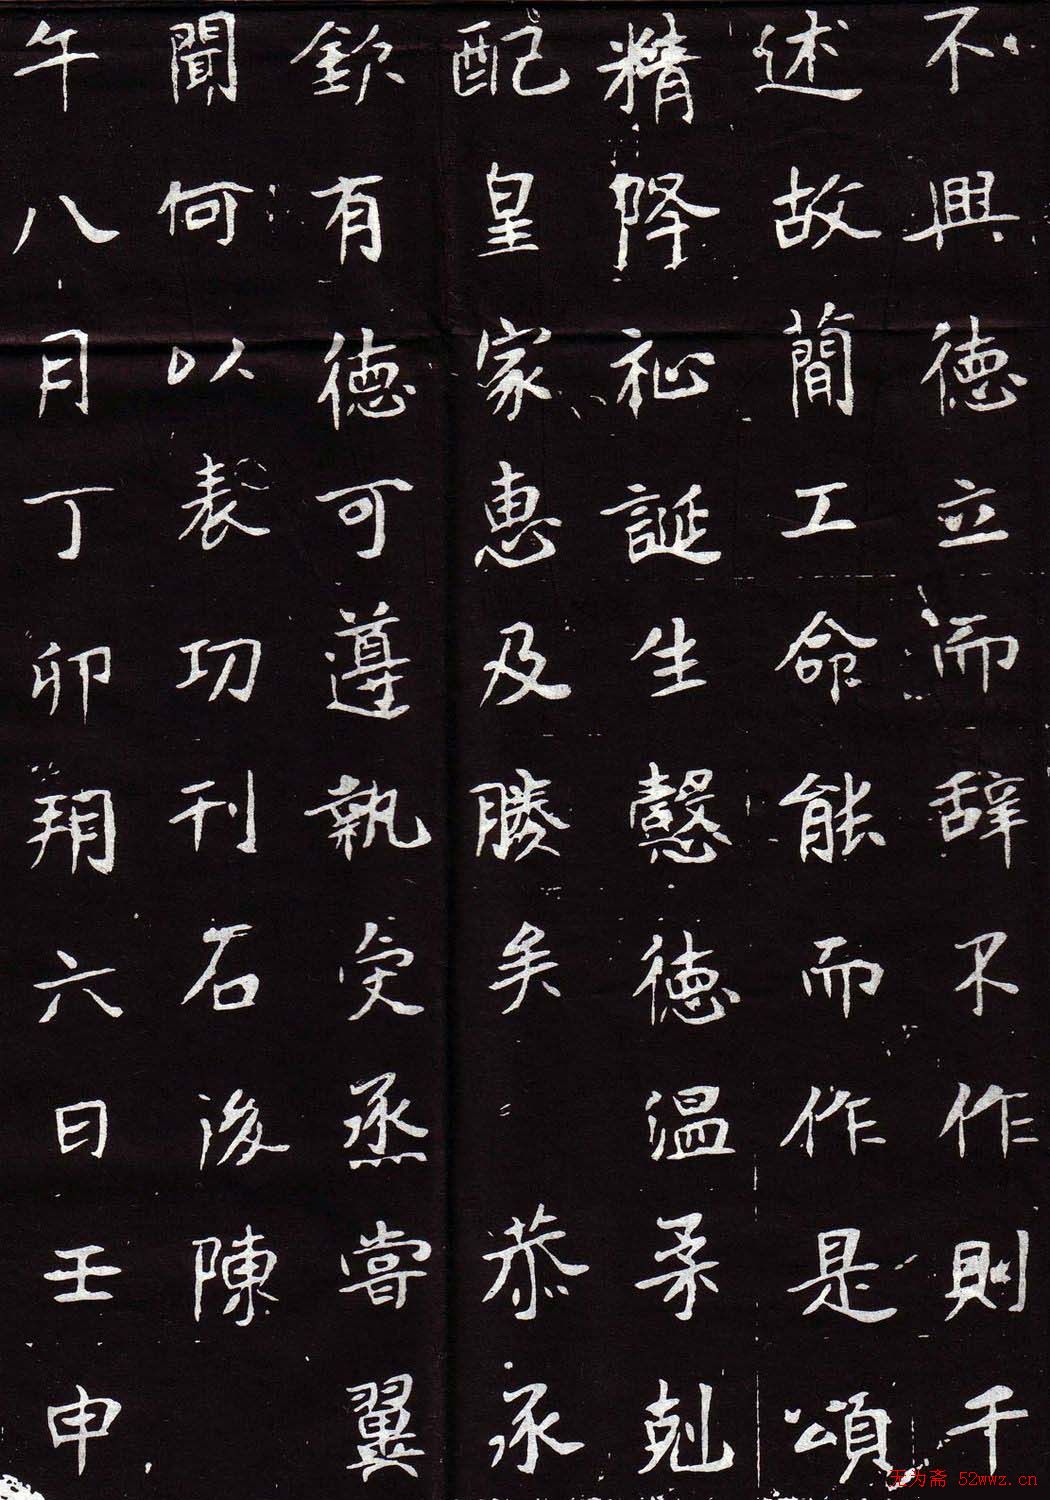 不興德立而辞不作則千
述故簡工命能而作是頌
精降祉誕生懿德温柔剋
配皇家惠及勝矣 恭承
欽有德可遵執受烝嘗翼
聞何以表功刊石後陳
午八月丁卯朔六日壬申
无为斋 52wwz.cn